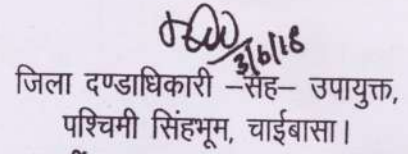 3/6/18
जिला दण्डाधिकारी –सह– उपायुक्त,
पश्चिमी सिंहभूम, चाईबासा।